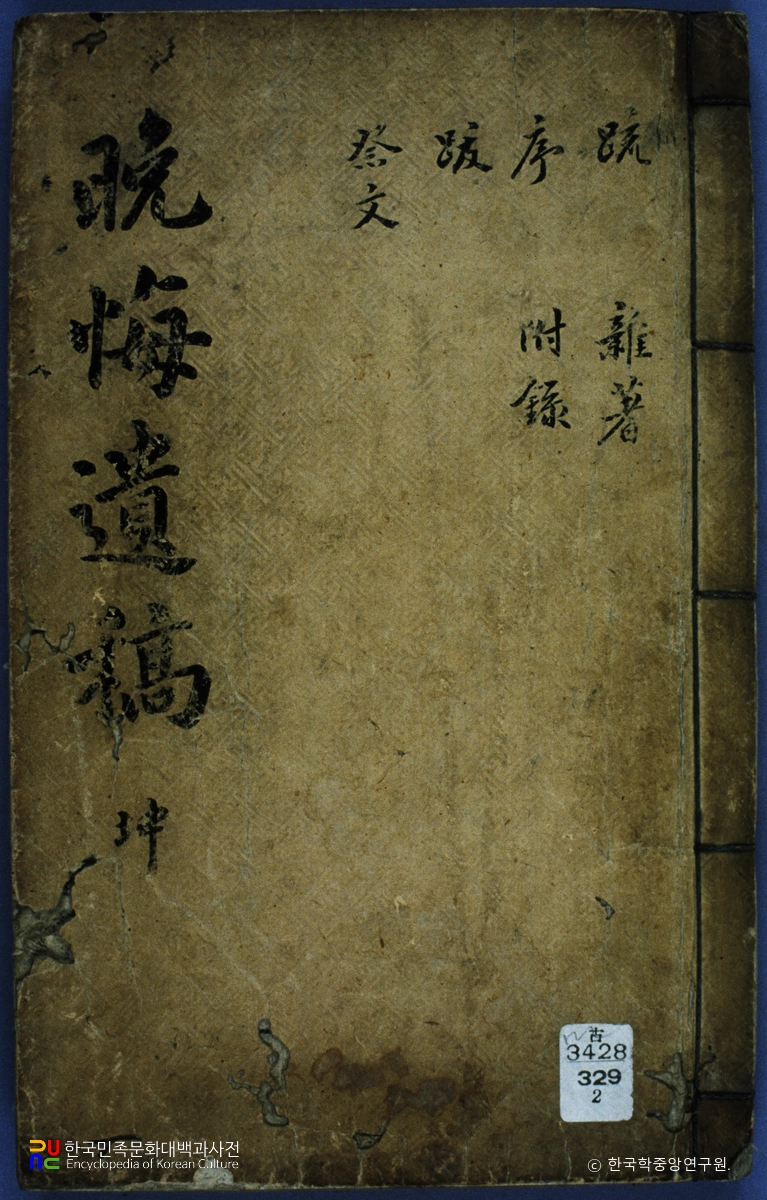 疏
序
跋
祭文
雜著
附錄
晩悔遺稿 坤
古
3428
329
2
한국민족문화대백과사전
Encyclopedia of Korean Culture
© 한국학중앙연구원.